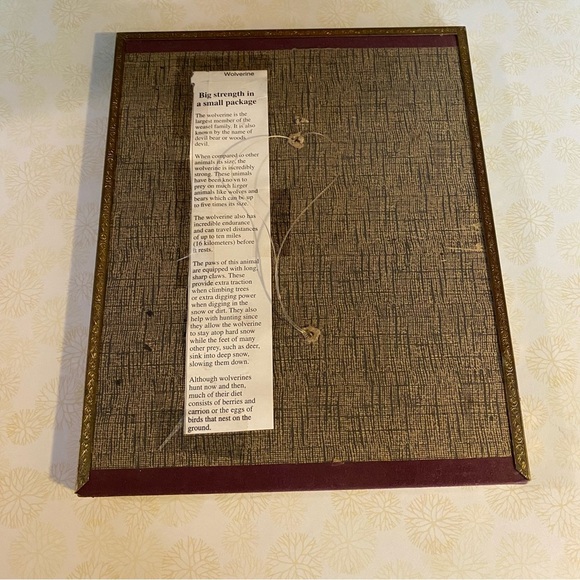 Wolverine
Big strength in
a small package
The wolverine is the
largest member of the
weasel family. It is also
known by the name of
devil bear or woods
devil.
When compared to other
animals its size, the
wolverine is incredibly
strong. These animals
have been known to
prey on much larger
animals like wolves and
bears which can be up
to five times its size.
The wolverine also has
incredible endurance
and can travel distances
of up to ten miles
(16 kilometers) before
it rests.
The paws of this animal
are equipped with long,
sharp claws. These
provide extra traction
when climbing trees
or extra digging power
when digging in the
snow or dirt. They also
help with hunting since
they allow the wolverine
to stay atop hard snow
while the feet of many
other prey, such as deer,
sink into deep snow,
slowing them down.
Although wolverines
hunt now and then,
much of their diet
consists of berries and
carrion or the eggs of
birds that nest on the
ground.